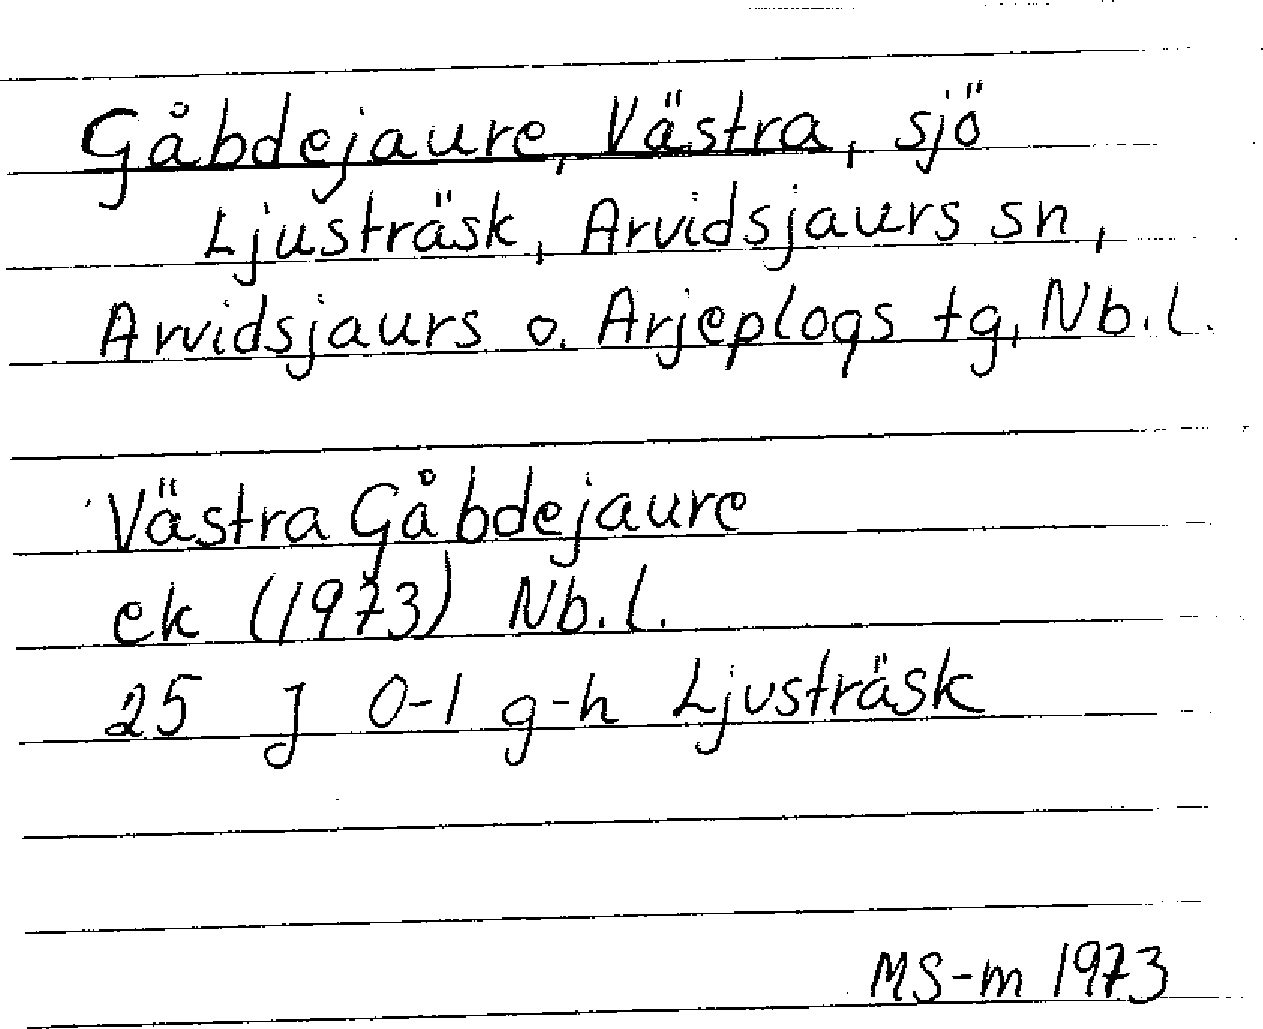 Gåbdejaure, Västra, sjö
Ljusträsk, Arvidsjaurs sn,
Arvidsjaurs o. Arjeplogs tg, Nb.l.
Västra Gåbdejaure
ek (1973) Nb.l.
25 J 0-1 g-h Ljusträsk
MS-m 1973